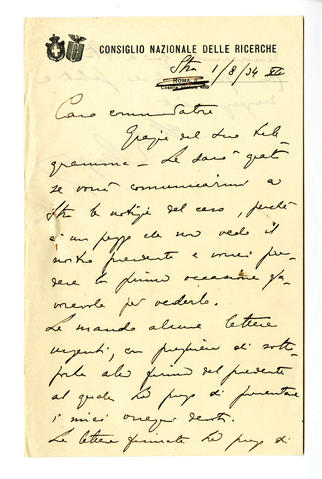 CONSIGLIO NAZIONALE DELLE RICERCHE
Stra 1/8/34 XII
ROMA,
Caro commendatore
Grazie del suo tele-
gramma - Le sarò grato
se vorrà comunicarmi a
Stra le notizie del caso, perché
è un pezzo che non vedo il
nostro presidente e vorrei pren-
dere la prima occasione fa-
vorevole per vederlo.
Le mando alcune lettere
urgenti, con preghiera di sotto-
porle alla firma del presidente
al quale La prego di presentare
i miei ossequi devoti.
Le lettere firmate La prego di